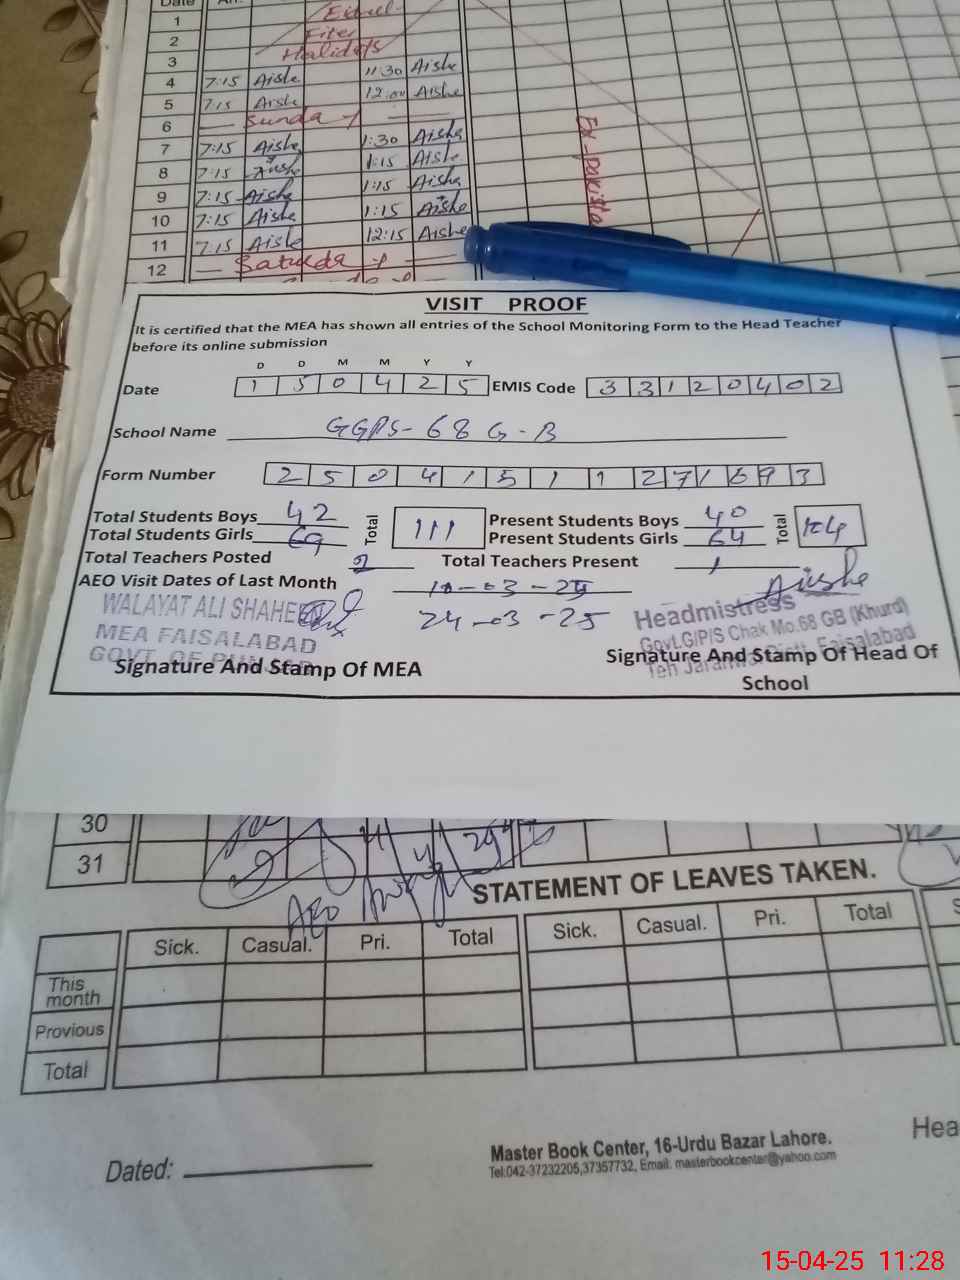 Date
1 Eidul-
2 Fiter
3 Halidats
4 7:15 Aishe 11:30 Aishe
5 7:15 Aishe 12:00 Aishe
6 — Sunda-y —
7 7:15 Aishe 1:30 Aishe
8 7:15 Aishe 1:15 Aishe
9 7:15 Aishe 1:15 Aishe
10 7:15 Aishe 1:15 Aishe
11 7:15 Aishe 12:15 Aishe
12 — Saturda-y —
Ex-pakista
VISIT PROOF
It is certified that the MEA has shown all entries of the School Monitoring Form to the Head Teacher
before its online submission
D D M M Y Y
Date 1 5 0 4 2 5 EMIS Code 3 3 1 2 0 4 0 2
School Name GGPS-68 G-B
Form Number 2 5 0 4 1 5 1 1 2 7 1 6 9 3
Total Students Boys 42 Total 111 Present Students Boys 40 Total 104
Total Students Girls 69 Present Students Girls 64
Total Teachers Posted 2 Total Teachers Present 1
AEO Visit Dates of Last Month 10-03-25 Aishe
24-03-25
WALAYAT ALI SHAHE
MEA FAISALABAD
GOVT. OF PUNJAB
Signature And Stamp Of MEA
Headmistress
Govt.G/P/S Chak No.68 GB (Khurd)
Teh Jaranwala Distt. Faisalabad
Signature And Stamp Of Head Of
School
30
31
AEO
STATEMENT OF LEAVES TAKEN.
Sick. Casual. Pri. Total Sick. Casual. Pri. Total
This
month
Provious
Total
Hea
Dated:
Master Book Center, 16-Urdu Bazar Lahore.
Tel:042-37232205,37357732, Email: masterbookcenter@yahoo.com
15-04-25 11:28